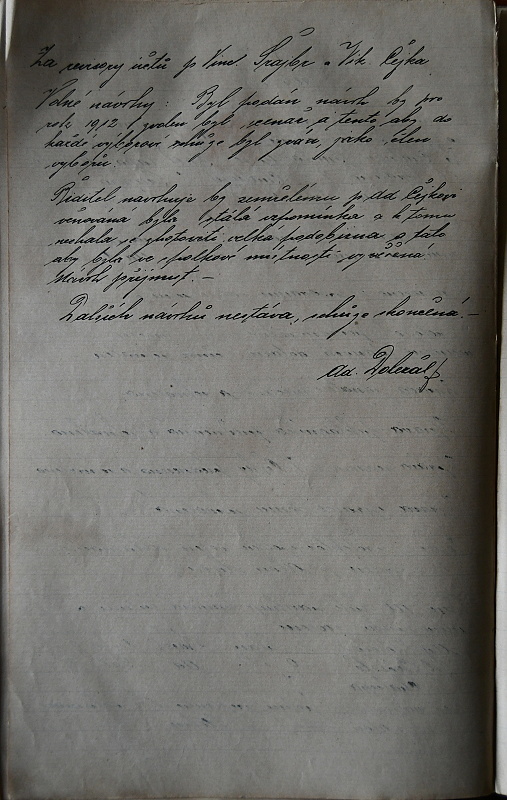 Za revisory účtů p Vinc Šrajbr a Vik. Čejka
Volné návrhy: Byl podán návrh by pro
rok 1912 zvolen byl scenar a tento aby do
každé výborové schůze byl zván jako člen
výboru.
Ředitel navrhuje by zemřelému p. Ad Čejkovi
věnovaná byla stálá vzpomínka a k tomu
nechala se zhotoviti velká podobizna a tato
aby byla ve spolkové místnosti vyvěšena
Návrh přijmut. –
Dalších návrhů nestáva, schůze skončena. –
Ad. Doležal